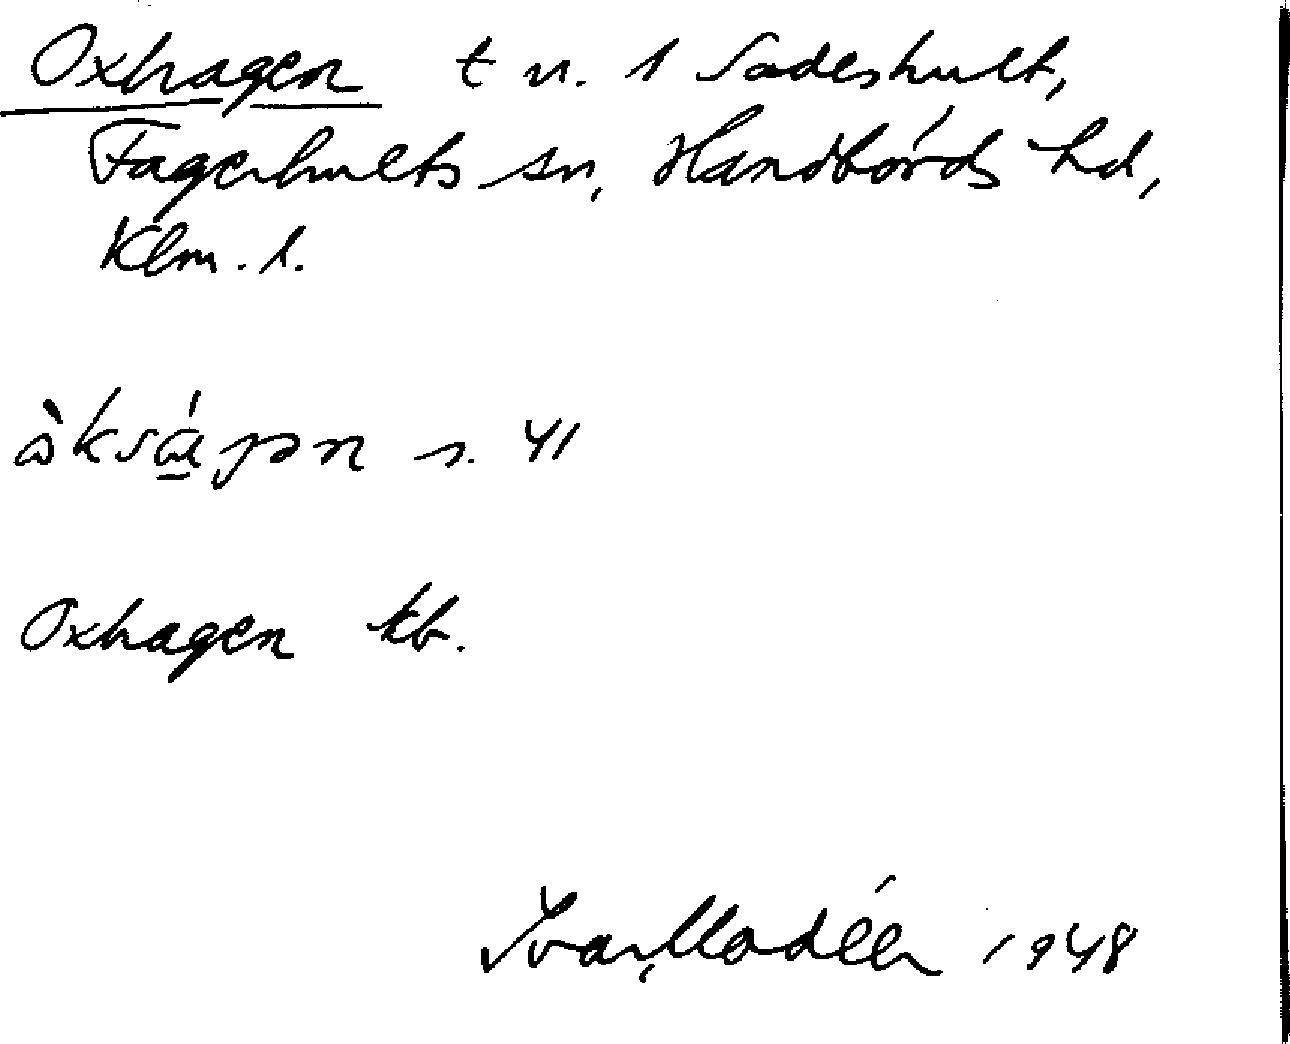 Oxhagen t u. 1 Sadeshult,
Fagerhults sn, Handbörds hd,
Klm. l.
s. 41
Oxhagen kb.
Ivar Modéer 1948